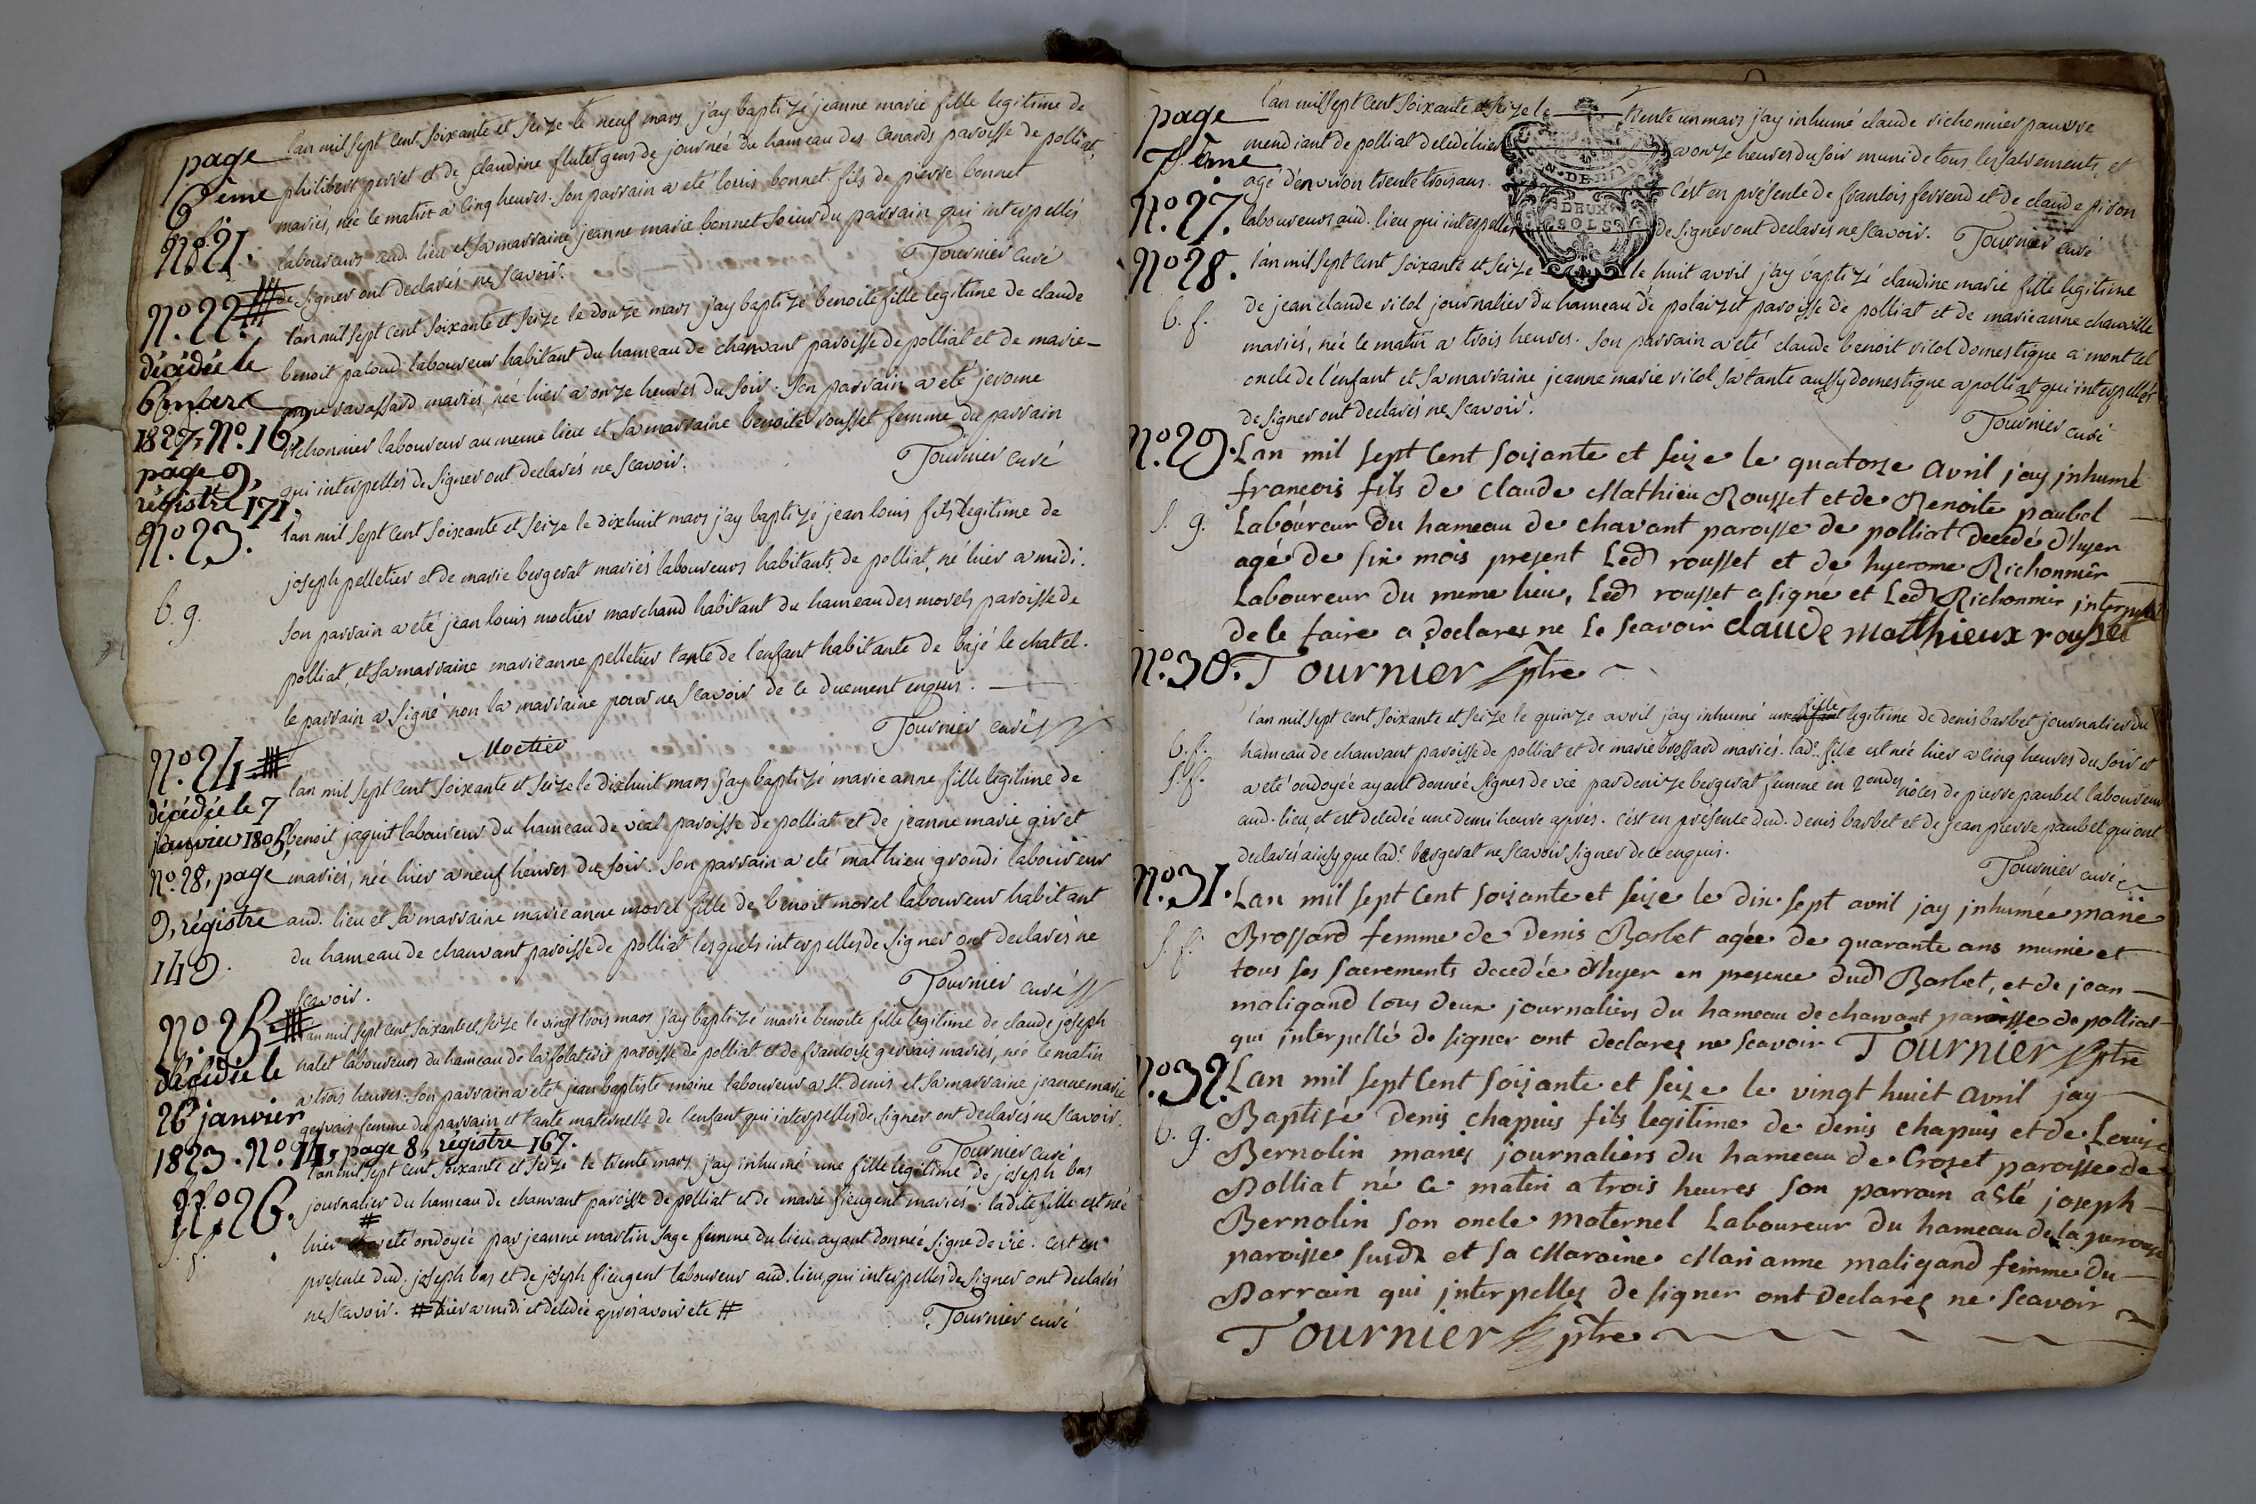 page
6ême
N°21.
l'an mil sept cent soixante et seize le neuf mars j'ay baptizé jeanne marie fille legitime de
philibert perret et de claudine flutet gens de journée du hameau des Canards paroisse de polliat,
mariés, née le matin a cinq heures. son parrain a eté louis bonnet fils de pierre bonnet
laboureurs aud. lieu et sa marraine jeanne marie bonnet soeur du parrain qui interpellés
de signer ont declarés ne scavoir. Tournier curé
N°22.
décédée le
1827, N°.16,
page 9,
régistre 171.
l'an mil sept cent soixante et seize le douze mars j'ay baptizé benoite fille legitime de claude
benoit paloud laboureur habitant du hameau de chanvant paroisse de polliat et de marie-
anne ravassard mariés, née hier a onze heures du soir. son parrain a eté jerome
richonnier laboureur au meme lieu et sa marraine benoite rousset femme du parrain
qui interpellés de signer ont declarés ne scavoir. Tournier curé
N°.23.
b. g.
l'an mil sept cent soixante et seize le dixhuit mars j'ay baptizé jean louis fils legitime de
joseph pelletier et de marie bergerat mariés laboureurs habitants de polliat, né hier a midi.
son parrain a eté jean louis moctier marchand habitant du hameau des morels paroisse de
polliat, et sa marraine marie anne pelletier tante de l'enfant habitante de bajé le chatel.
le parrain a signé non la marraine pour ne scavoir de ce duement enquis.
Moctier Tournier curé
N°.24
décédée le 7
janvier 1805
N°.28, page
9, régistre
149.
l'an mil sept cent soixante et seize le dixhuit mars j'ay baptizé marie anne fille legitime de
benoit jaquit laboureur du hameau de vial paroisse de polliat et de jeanne marie givet
mariés, née hier a neuf heures du soir. son parrain a eté mathieu grondi laboureur
aud. lieu et sa marraine marie anne morel fille de benoit morel laboureur habitant
du hameau de chanvant paroisse de polliat lesquels interpellés de signer ont declarés ne
scavoir. Tournier curé
N°.25
décédée le
26 janvier
1823. N°.14, page 8, régistre 167.
l'an mil sept cent soixante et seize le vingt trois mars j'ay baptizé marie benoite fille legitime de claude joseph
nalet laboureurs du hameau de la folaterie paroisse de polliat et de francoise gervais mariés, née le matin
a trois heures. son parrain a eté jean baptiste moine laboureur a st. denis et sa marraine jeanne marie
gervais femme du parrain et tante maternelle de l'enfant qui interpellés de signer ont declarés ne scavoir.
Tournier curé
N°.26.
s. f.
l'an mil sept cent soixante et seize le trente mars j'ay inhumé une fille legitime de joseph bas
journalier du hameau de chanvant paroisse de polliat et de marie fieugent mariés. ladite fille est née
hier # eté ondoyée par jeanne martin sage femme du lieu ayant donnée signe de vie. C'est en
presence dud. joseph bas et de joseph fieugent laboureur aud. lieu, qui interpellés de signer ont declarés
ne scavoir. # hier a midi et decedée aprés avoir ete # Tournier curé
page
7.ême
N°.27.
l'an mil sept cent soixante et seize le trente un mars j'ay inhumé claude richonnier pauvre
mendiant de polliat decedé hier a onze heures du soir muni de tous les sacrements, et
agé d'environ trente trois ans. C'est en présence de francois ferrend et de claude piron
laboureurs aud. lieu qui interpellés de signer ont declarés ne scavoir. Tournier curé
DEUX
SOLS
N°28.
b. f.
l'an mil sept cent soixante et seize le huit avril j'ay baptizé claudine marie fille legitime
de jean claude vilol journalier du hameau de polaizet paroisse de polliat et de marie anne chanville
mariés, née le matin a trois heures. son parrain a eté claude benoit vilol domestique a montcel
oncle de l'enfant et sa marraine jeanne marie vilol sa tante aussy domestique a polliat qui interpellés
de signer ont declarés ne scavoir.
Tournier curé
N°.29.
s. g.
Lan mil sept Cent soixante et seize le quatorze avril jay inhumé
françois fils de Claude Mathieu Rousset et de Benoite paubel
Laboureur Du hameau de chavant paroisse de polliat Decedé D'hyer
agé de six mois present Led rousset et de hyerome Richonmir
Laboureur Du meme lieu, Led rousset a signé et Led Richonmir interpellé
de le faire a Declares ne le scavoir claude mathieux rousset
N°.30.
Tournier ptre
b. f.
s. f.
l'an mil sept cent soixante et seize le quinze avril j'ay inhumé une fille legitime de denis barbet journalier du
hameau de chanvant paroisse de polliat et de marie brossard mariés. lade. fille est née hier a cinq heures du soir et
a eté ondoyée ayant donnée signes de vie par denize bergerat femme en 2ondes nôces de pierre paubel laboureur
aud. lieu, et est decedée une demi heure aprés. c'est en présence dud. denis barbet et de jean pierre paubel qui ont
declarés ainsy que lade. bergerat ne scavoir signer de ce enquis.
Tournier curé
N°.31.
s. f.
Lan mil sept Cent soixante et seize le dix sept avril jay inhumée marie
Brossard femme de Denis Barbet agée de quarante ans munie et
tous ses sacrements decedée d'hyer en presence dud Barbet, et de jean
maligand tous deux journaliers du hameau de chanvant paroisse de polliat
qui interpellé de signer ont declarez ne scavoir Tournier ptre
N°.32.
b. g.
Lan mil sept Cent soixante et seize le vingt huit avril jay
Baptisé Denis chapuis fils legitime de denis chapuis et de Louise
Bernolin mariez journaliers du hameau de Crozet paroisse de
Polliat né ce matin a trois heures son parrain a Eté joseph
Bernolin son oncle maternel Laboureur du hameau de la perouse
paroisse susd et sa Maraine Marianne maligand femme du
Parrain qui interpellez de signer ont Declarez ne scavoir
Tournier ptre